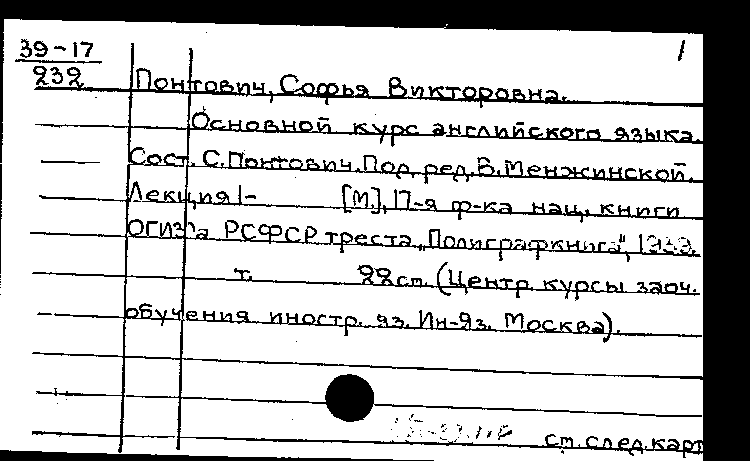 39-17 1
232
Понтович, Софья Викторовна.
Основной курс английского языка.
Сост. С. Понтович. Под ред. В. Менжинской.
Лекция 1- [М], 17-я ф-ка нац. книги
ОГИЗ'а РСФСР треста „Полиграфкнига",
т. 22 см. (Центр. курсы заоч.
обучения иностр. яз. Ин-Яз. Москва).
см. след. карт